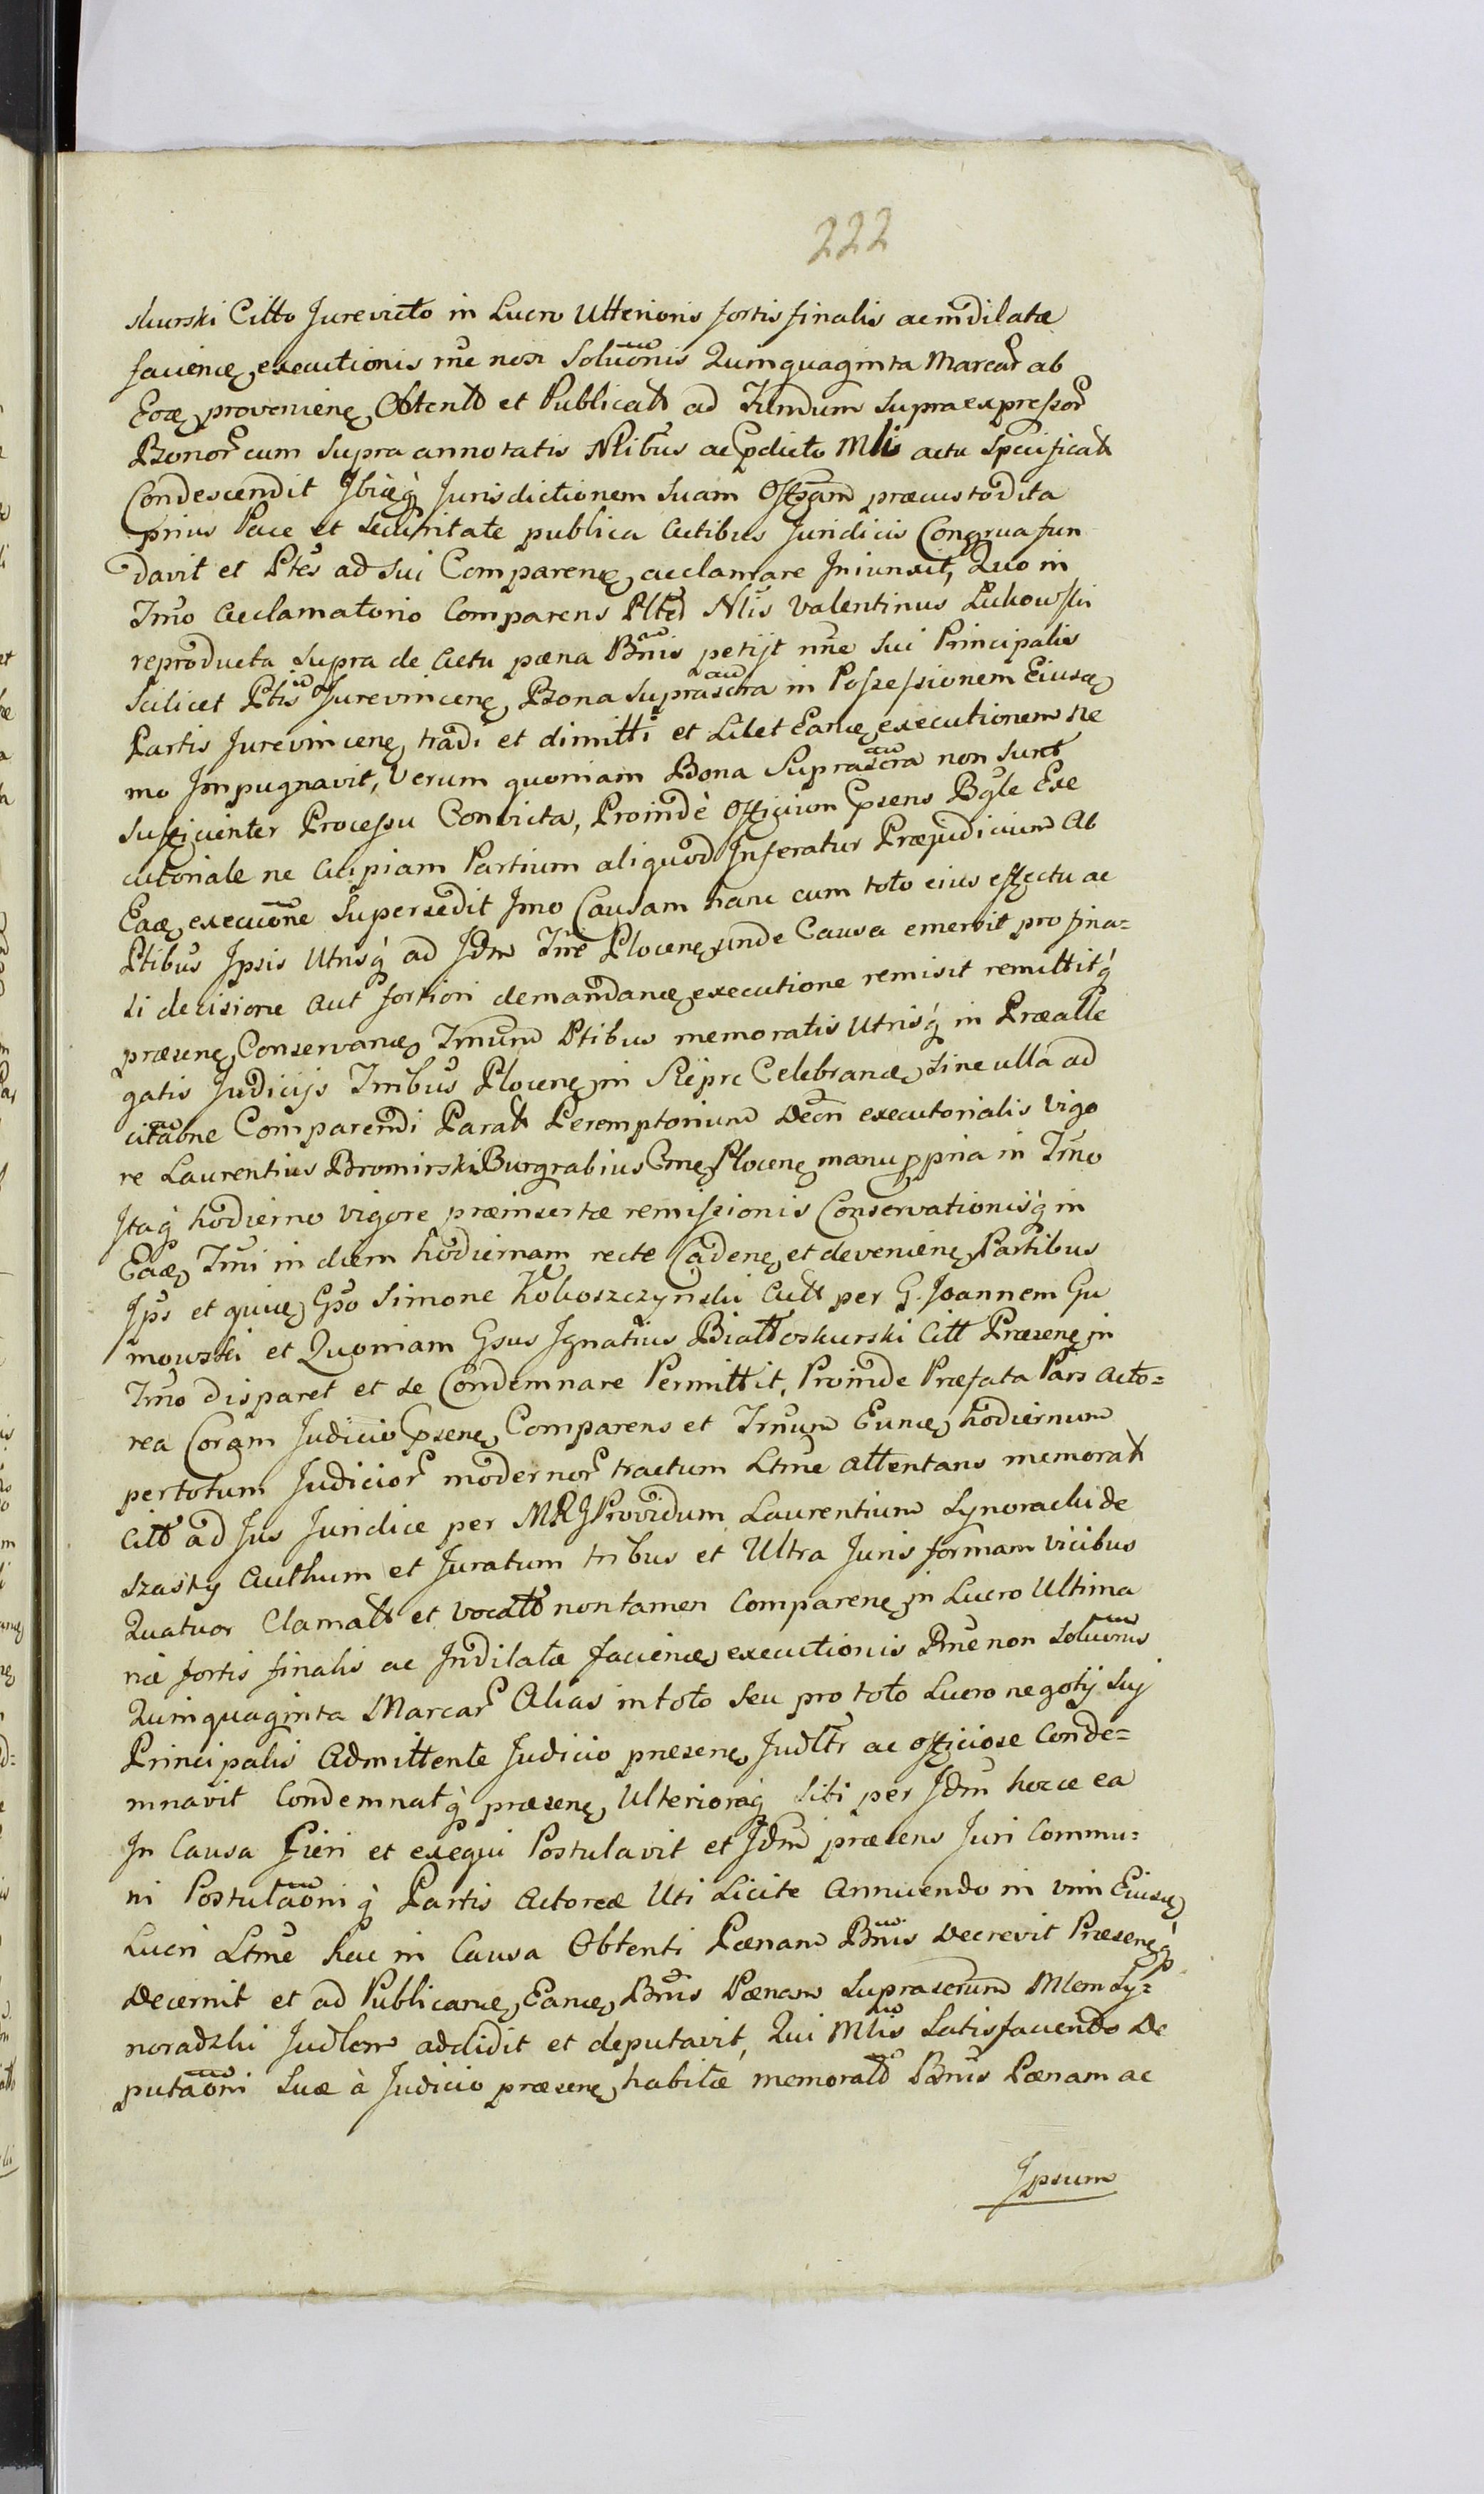 222
skurski Citto Jurevicto in Lucro Ulterioris fortis finalis ac indilatæ
faciene executionis rne non Soluonis Quinquaginta Marcar ab
Eoæ proveniene Obtento et Publicato ad Fundum supraexpressor
Bonor cum supra annotatis Nlibus ac pdicto Mli actu specificato
Condescendit Ibiæq Jurisdictionem suam Offsam præcustodita
prius Pace et securitate publica Actibus Juridicis Congrua fun
davit et Ptes ad sui Comparene acclamare Iniunxit, Quo in
Tmo Acclamatorio Comparens Pltd Nlis Valentinus Lukowski
reproducta supra de Actu pæna Bnis petijt nne sui Principalis
Scilicet Ptis Jurevincene Bona suprascra in Possessionem Eiusæ
Partis Jurevincene tradi et dimitti et Licet Eance executionem ne
mo Impugnavit, Verum quoniam Bona Suprascra non sunt
sufficienter Processu Convicta, Proindè Officium Psens Bgle Exe
cutoriale ne Cuipiam Partium aliquod Inferatur Præjudicium Ab
Eaæ execuone Supersedit Imo Causam hanc cum toto eius effectu ac
Ptibus Ipsis Utrisq ad Jdm Tnre Plocene unde Causa emersit pro fina=
li decisione aut fortiori demandance executione remisit remittitq
præsene Conservance Tmum Ptibus memoratis Utrisq in Prealle
gatis Judicijs Tnribus Plocene in Repre Celebrance sine ulla ad
citaone Comparendi Parato Peremptorium Decri executorialis vigo
re Laurentius Bromirski Burgrabius Cme Plocene manu ppria in Tmo
Itaq hodierno vigore præinsertæ remissionis Conservationisq in
Eaæ Tmi in diem hodiernam recte Cadene et deveniene Partibus
Ips et quice Gso Simone Koboszczynski Acto per G. Joannem Gu
mowski et Quoniam Gsus Ignatius Białłoskurski Citt Præsene in
Tmo disparet et se Condemnare Permittit, Proinde Præfata Pars Acto=
rea Coram Judicio Psene Comparens et Trmum Eunce hodiernum
pertotum Judicior modernor tractum Ltme attentans memorato
Citto ad Jus Juridice per MRJ Providum Laurentium Synoracki de
Szasty Authum et Juratum tribus et Ultra Juris formam vicibus
Quatuor Clamato et vocato non tamen Comparene in Lucro Ultima
riæ fortis finalis ac Indilatæ faciene executionis Rne non Soluonis
Quinquaginta Marcar Alias in toto seu pro toto Lucro negotij suj
Principalis Admittente Judicio præsene Judltr ac officiose Conde=
mnavit Condemnatq præsene Ulterioraq sibi per Jdm hocce ea
In Causa Fieri et exequi Postulavit et Jdm præsens Juri Commu=
ni Postulaoniq Partis Actoreæ Uti Licite Annuendo in vim Eiusce
Lucri Ltme hac in Causa Obtenti Pænam Bnis Decrevit Præseneq
Decernit et ad Publicance Eance Bnis Pænam Suprascram Mlem Sy=
noradzki Judlem addidit et deputavit, Qui Mlis Satisfaciendo De
putaoni Suæ à Judicio præsene habitæ memorato Bnis Pænam ac
Ipsum